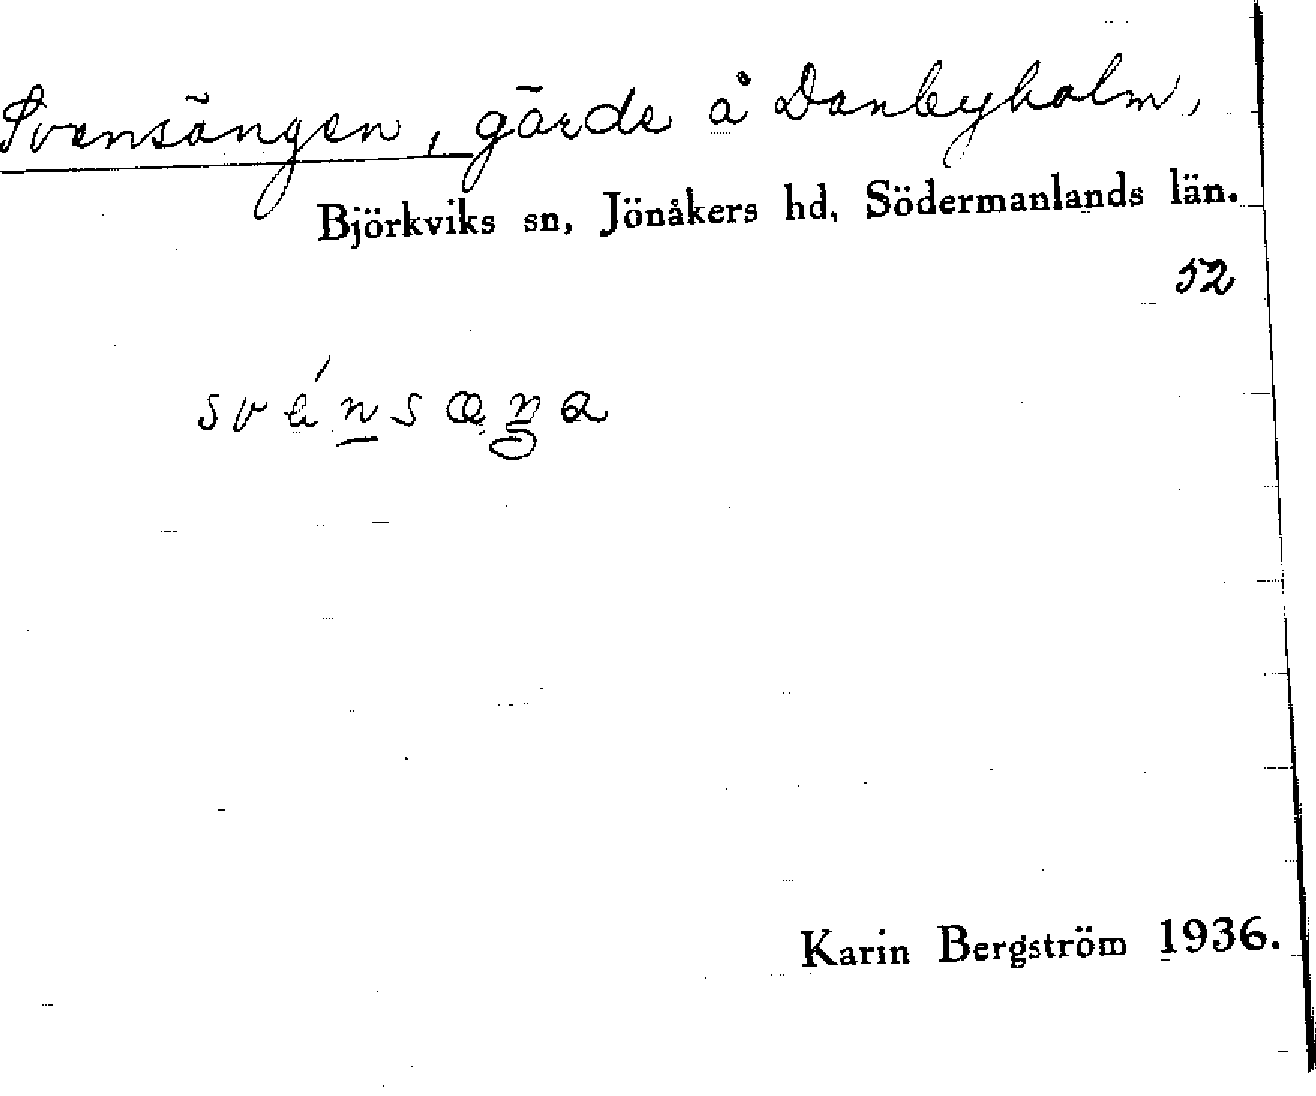 Svensängen, gärde å Danbyholm,
Björkviks sn, Jönåkers hd, Södermanlands län.
52
Karin Bergström 1936.